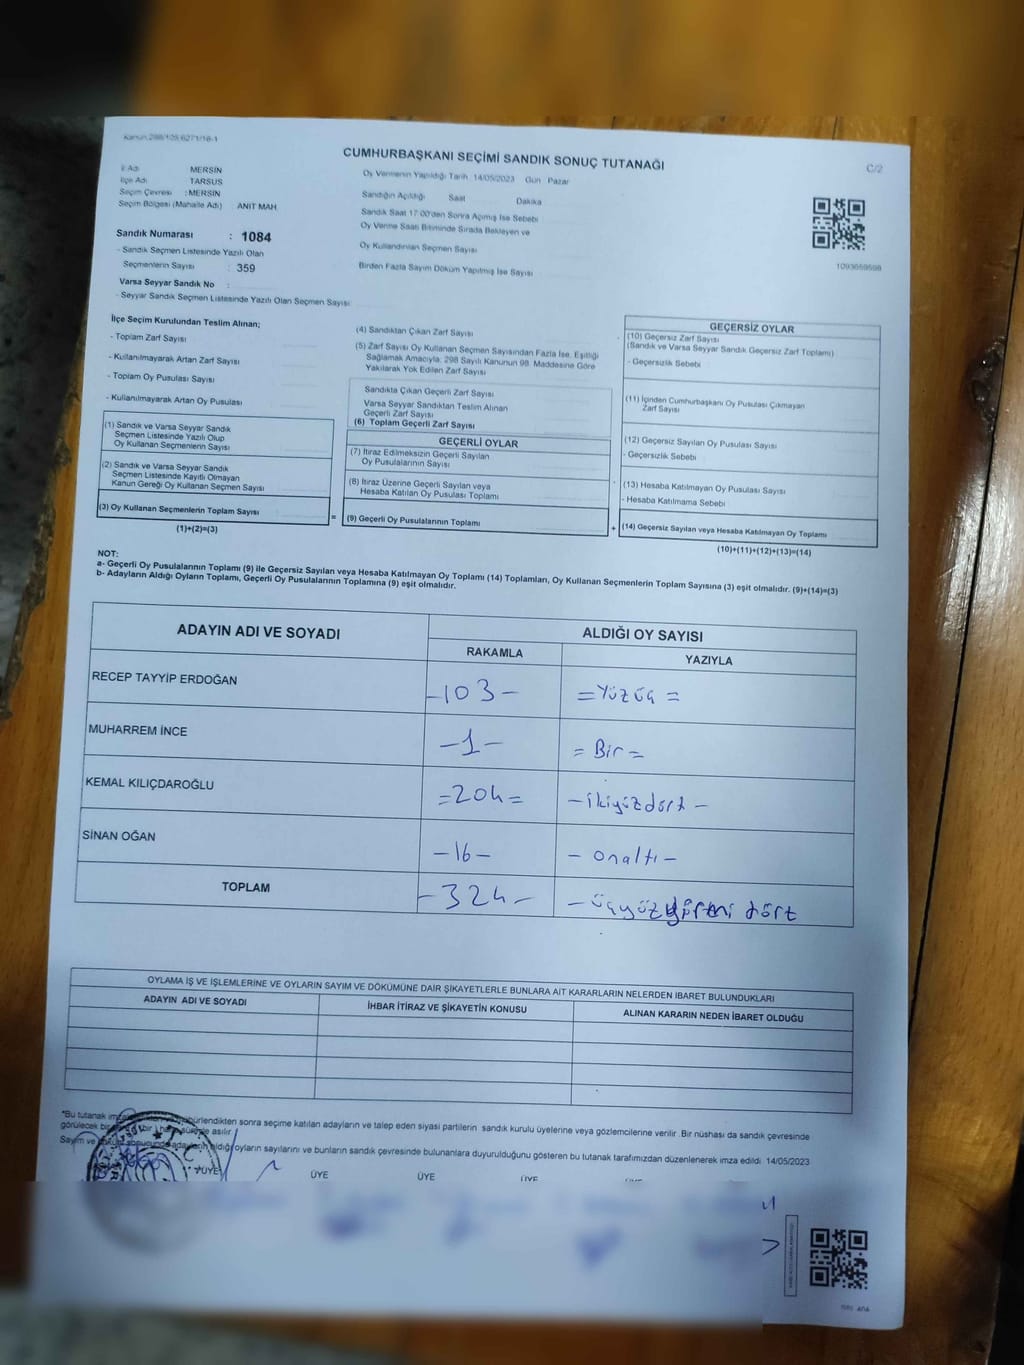 Kanun 298/105,6271/16-1
CUMHURBAŞKANI SEÇİMİ SANDIK SONUÇ TUTANAĞI
C/2
İl Adı MERSİN
İlçe Adı TARSUS
Seçim Çevresi : MERSİN
Seçim Bölgesi (Mahalle Adı) : ANIT MAH.
Sandık Numarası : 1084
- Sandık Seçmen Listesinde Yazılı Olan
Seçmenlerin Sayısı : 359
Varsa Seyyar Sandık No :
- Seyyar Sandık Seçmen Listesinde Yazılı Olan Seçmen Sayısı
Oy Vermenin Yapıldığı Tarih 14/05/2023 Gün Pazar
Sandığın Açıldığı Saat Dakika
Sandık Saat 17.00'den Sonra Açımış İse Sebebi
Oy Verme Saati Bitiminde Sırada Bekleyen ve
Oy Kullandırılan Seçmen Sayısı
Birden Fazla Sayım Döküm Yapılmış İse Sayısı
İlçe Seçim Kurulundan Teslim Alınan;
- Toplam Zarf Sayısı
- Kullanılmayarak Artan Zarf Sayısı
- Toplam Oy Pusulası Sayısı
- Kullanılmayarak Artan Oy Pusulası
(1) Sandık ve Varsa Seyyar Sandık
Seçmen Listesinde Yazılı Olup
Oy Kullanan Seçmenlerin Sayısı
(2) Sandık ve Varsa Seyyar Sandık
Seçmen Listesinde Kayıtlı Olmayan
Kanun Gereği Oy Kullanan Seçmen Sayısı
(3) Oy Kullanan Seçmenlerin Toplam Sayısı
(1)+(2)=(3)
(4) Sandıktan Çıkan Zarf Sayısı
(5) Zarf Sayısı Oy Kullanan Seçmen Sayısından Fazla İse, Eşitliği
Sağlamak Amacıyla, 298 Sayılı Kanunun 98. Maddesine Göre
Yakılarak Yok Edilen Zarf Sayısı
Sandıkta Çıkan Geçerli Zarf Sayısı
Varsa Seyyar Sandıktan Teslim Alınan
Geçerli Zarf Sayısı
(6) Toplam Geçerli Zarf Sayısı
GEÇERLİ OYLAR
(7) İtiraz Edilmeksizin Geçerli Sayılan
Oy Pusulalarının Sayısı
(8) İtiraz Üzerine Geçerli Sayılan veya
Hesaba Katılan Oy Pusulası Toplamı
= (9) Geçerli Oy Pusulalarının Toplamı
GEÇERSİZ OYLAR
(10) Geçersiz Zarf Sayısı
(Sandık ve Varsa Seyyar Sandık Geçersiz Zarf Toplamı)
- Geçersizlik Sebebi
(11) İçinden Cumhurbaşkanı Oy Pusulası Çıkmayan
Zarf Sayısı
(12) Geçersiz Sayılan Oy Pusulası Sayısı
- Geçersizlik Sebebi
(13) Hesaba Katılmayan Oy Pusulası Sayısı
- Hesaba Katılmama Sebebi
+ (14) Geçersiz Sayılan veya Hesaba Katılmayan Oy Toplamı
(10)+(11)+(12)+(13)=(14)
NOT:
a- Geçerli Oy Pusulalarının Toplamı (9) ile Geçersiz Sayılan veya Hesaba Katılmayan Oy Toplamı (14) Toplamları, Oy Kullanan Seçmenlerin Toplam Sayısına (3) eşit olmalıdır. (9)+(14)=(3)
b- Adayların Aldığı Oyların Toplamı, Geçerli Oy Pusulalarının Toplamına (9) eşit olmalıdır.
ADAYIN ADI VE SOYADI ALDIĞI OY SAYISI
RAKAMLA YAZIYLA
RECEP TAYYİP ERDOĞAN -103- =Yüzüç=
MUHARREM İNCE -1- =Bir=
KEMAL KILIÇDAROĞLU =204= -ikiyüzdört-
SİNAN OĞAN -16- -onaltı-
TOPLAM -324- -üçyüzyirmi dört
OYLAMA İŞ VE İŞLEMLERİNE VE OYLARIN SAYIM VE DÖKÜMÜNE DAİR ŞİKAYETLERLE BUNLARA AİT KARARLARIN NELERDEN İBARET BULUNDUKLARI
ADAYIN ADI VE SOYADI İHBAR İTİRAZ VE ŞİKAYETİN KONUSU ALINAN KARARIN NEDEN İBARET OLDUĞU
*Bu tutanak sonra seçime katılan adayların ve talep eden siyasi partilerin sandık kurulu üyelerine veya gözlemcilerine verilir. Bir nüshası da sandık çevresinde
görülecek bir asılır.
Sayım ve aldığı oyların sayılarını ve bunların sandık çevresinde bulunanlara duyurulduğunu gösteren bu tutanak tarafımızdan düzenlenerek imza edildi. 14/05/2023
ÜYE ÜYE ÜYE ÜYE